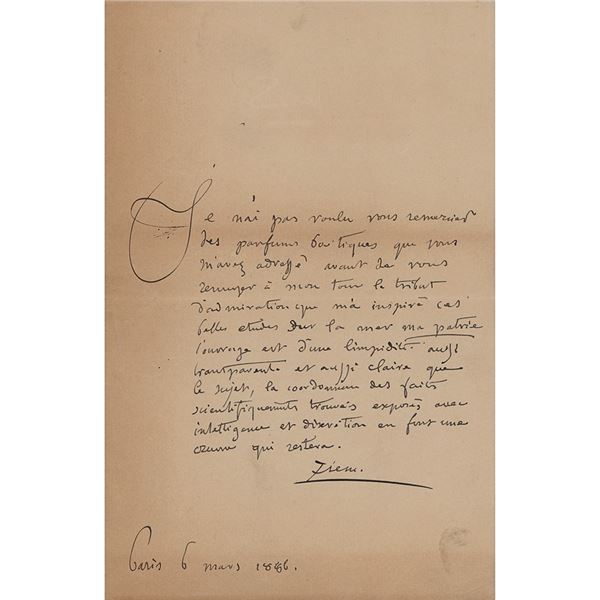 Je n'ai pas voulu vous remercier
des parfums poëtiques que vous
m'avez adressé avant de vous
renvoyer à mon tour le tribut
d'admiration que m'a inspiré ces
belles etudes sur la mer ma patrie
l'ouvrage est d'une limpidité aussi
transparente et aussi claire que
le sujet, la coordonnan des faits
scientifiquements trouvés exposés avec
intelligence et discretion en font une
œuvre qui restera.
Ziem.
Paris 6 mars 1886.